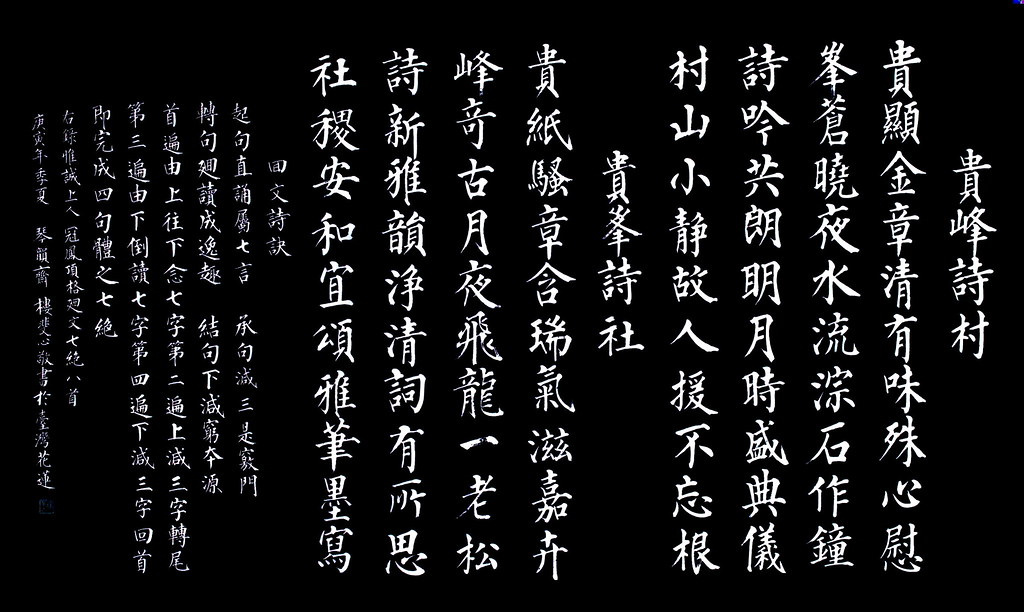 貴峰詩村
貴顯金章清有味殊心慰
峯蒼曉夜水流淙石作鐘
詩吟共朗明月時盛典儀
村山小静故人援不忘根
貴峯詩社
貴紙騷章含瑞氣滋嘉卉
峰奇古月夜飛龍一老松
詩新雅韻浄清詞有所思
社稷安和宜頌雅筆墨寫
回文詩訣
起句直誦屬七言 承句減三是竅門
轉句廻讀成逸趣 結句下減窮本源
首遍由上往下念七字第二遍上減三字轉尾
第三遍由下倒讀七字第四遍下減三字回首
即完成四句體之七絶
右錄惟誠上人冠鳳頂格廻文七絶八首
庚寅年季夏 琴韻齋 樓斐心敬書於臺灣花蓮